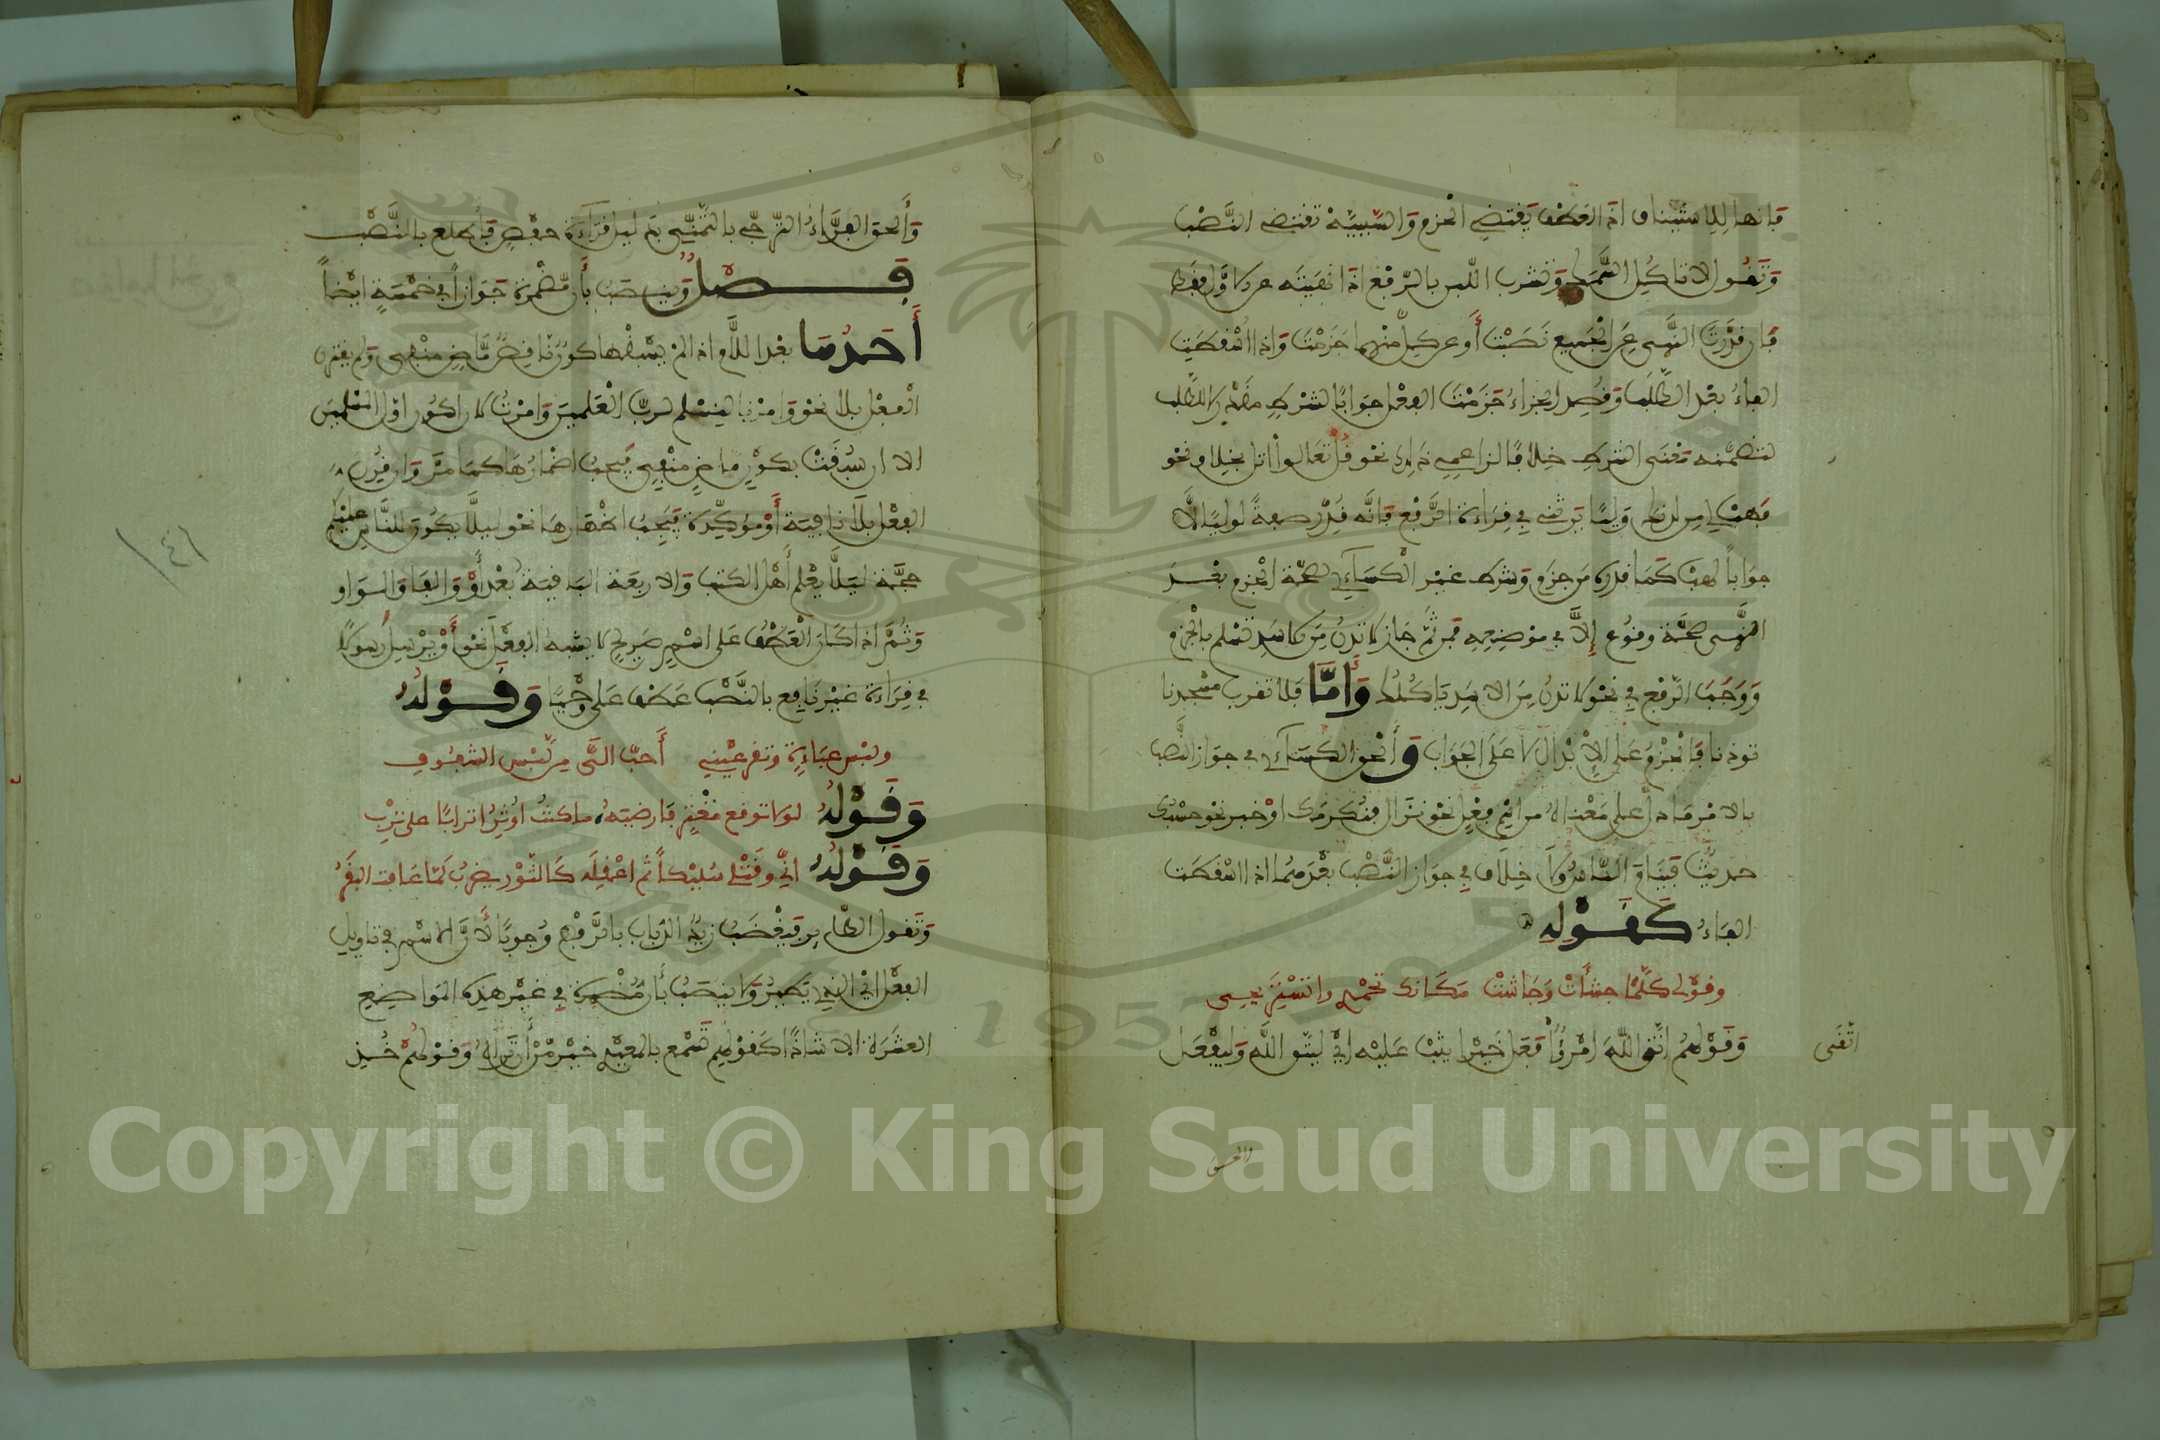 فإنها للاستئناف اذ العطف يقتضي الجزم والسببية تقتضي النصب
وتقول لا تاكل السمك وتشرب اللبن بالرفع اذا نهيته عن الاول فقط
فإن قدرت النهي عن الجميع نصبت أو عن كل منهما جزمت واذا اسقطت
الفاء بعد الطلب وقصد الجزاء جزمت الفعل جوابا لشرط مقدر لا للطلب
لتضمنه معنى الشرط خلافا لزاعمي ذلك نحو قل تعالوا اتل بخلاف نحو
فهب لي من لدنك وليا يرثني في قراءة الرفع فانه قدره صفة لوليا لا
جوابا لهب كما قدره من جزم وشرط غير الكسائي لصحة الجزم بعد
النهي صحة وقوع إلا في موضعه فمن ثم جاز لا تدن من الاسد تسلم بالجزم
ووجب الرفع في نحو لا تدن من الاسد ياكلك وأما فلا تقرب مسجدنا
توذنا فالجزم على الابدال لا على الجواب وألحق الكسائي في جواز النصب
بالامر ما دل على معناه من اسم فعل نحو نزال فنكرمك او خبر نحو حسبك
حديث فينام الناس ولا خلاف في جواز النصب بعدهما اذا اسقطت
الفاء كقوله
وقولي كلما جشأت وجاشت مكانك تحمدي او تستريحي
وقولهم اتقى الله امرؤ فعل خيرا يثب عليه اي ليتق الله وليفعل
اتقى
والحق
وألحق الفراء الترجي بالتمني بدليل قراءة حفص فأطلع بالنصب
فصل وينصب بأن مضمرة جوازا في خمسة ايضا
أحدها بعد اللام اذا لم يسبقها كون ناقص ماض منفي ولم يقترن
الفعل بلا نحو وامرنا لنسلم لرب العلمين وامرت لان اكون اول المسلمين
الا ان سبقت بكون ماض منفي فيجب اضمارها كما مر وان قرن
الفعل بلا نافية أو مؤكدة فيجب اظهارها نحو ليلا يكون للناس عليكم
حجة ليلا يعلم أهل الكتب والاربعة الباقية بعد أو والفا والواو
وثم اذا كان العطف على اسم صريح لا يشبه الفعل نحو أو يرسل رسولا
في قراءة غير نافع بالنصب عطفا على وحيا وقوله
ولبس عباءة وتقر عيني أحب الي من لبس الشفوف
وقوله لولا توقع معتر فارضيه ما كنت اوثر اترابا على ترب
وقوله اني وقتلي سليكا ثم اعقله كالثور يضرب لما عافت البقر
وتقول الطاير فيغضب زيد الذباب بالرفع وجوبا لأن الاسم في تاويل
الفعل اي الذي يطير ولا ينصب بأن مضمرة في غير هذه المواضع
العشرة الا شاذا كقولهم تسمع بالمعيدي خير من أن تراه وقولهم خذ
١٤١
Copyright © King Saud University
1957